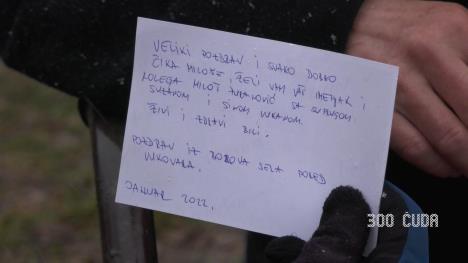 VELIKI POZDRAV I SVAKO DOBRO
ČIKA MILOŠE, ŽELI VAM VAŠ IMENJAK I
KOLEGA MILOŠ SA SUPRUGOM
SUZANOM I SINOM VUKANOM.
ŽIVI I ZDRAVI BILI.
POZDRAV IZ BOROVA SELA PORED
VUKOVARA.
JANUAR 2022.
300 ČUDA